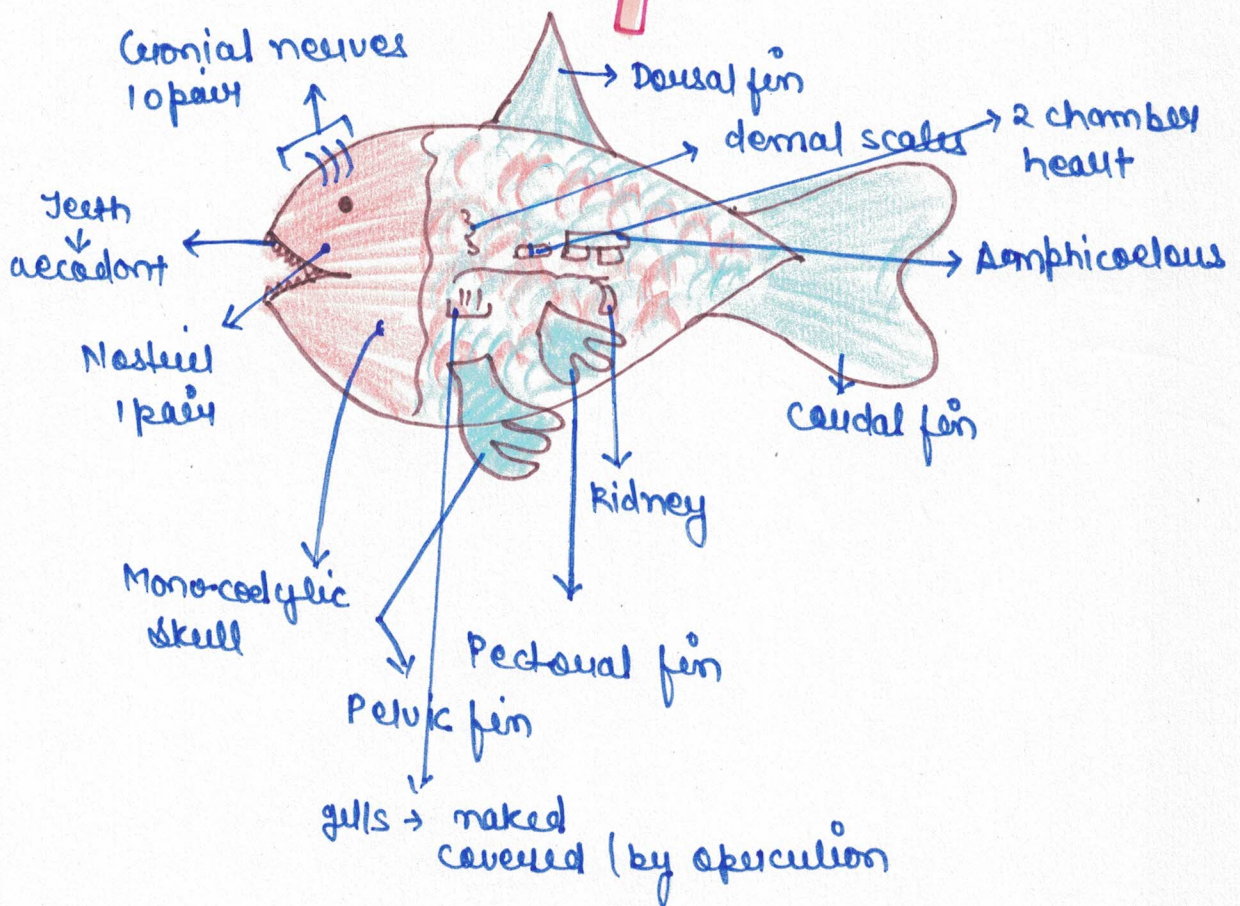 Cronial nerves
10 pair
Dorsal fin
demal scales
2 chamber
heart
Teeth
↓
aecodont
Amphicoelous
Nostril
1 pair
Caudal fin
Kidney
Mono-codylic
skull
Pectoral fin
Pelvic fin
gills → naked
covered (by operculion